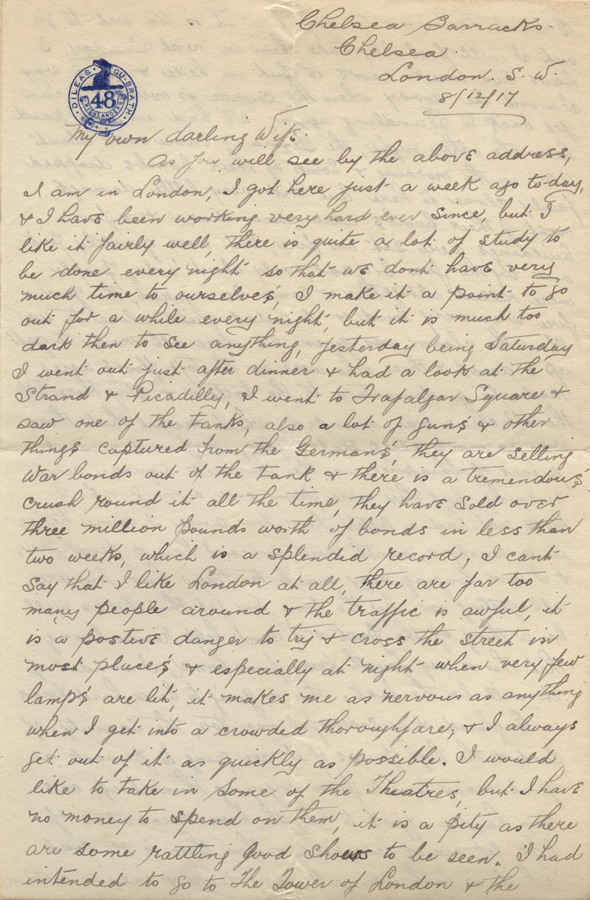 Chelsea Barracks.
Chelsea.
London. S. W.
8/12/17
DILEAS GU BRATH
48
HIGHLANDERS
My own darling Wife.
As you will see by the above address,
I am in London, I got here just a week ago to-day,
& I have been working very hard ever since, but I
like it fairly well, there is quite a lot of study to
be done every night so that we dont have very
much time to ourselves, I make it a point to go
out for a while every night, but it is much too
dark then to see anything, yesterday being Saturday
I went out just after dinner & had a look at the
Strand & Picadilly, I went to Trafalgar Square &
saw one of the tanks, also a lot of guns & other
things captured from the Germans, they are selling
War bonds out of the tank & there is a tremendous
crush round it all the time, they have sold over
three million pounds worth of bonds in less than
two weeks, which is a splendid record, I cant
say that I like London at all, there are far too
many people around & the traffic is awful, it
is a postive danger to try & cross the street in
most places & especially at night when very few
lamps are lit, it makes me as nervous as anything
when I get into a crowded thoroughfare, & I always
get out of it as quickly as possible. I would
like to take in some of the Theatres, but I have
no money to spend on them, it is a pity as there
are some rattling good shows to be seen. I had
intended to go to the Tower of London & the